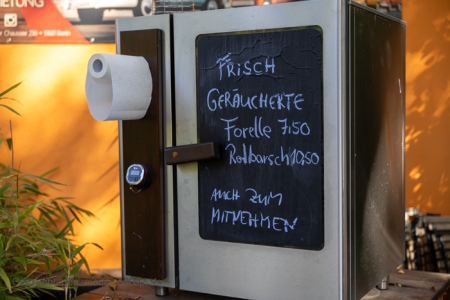 IETUNG
er Chaussee 290 • 12359 Berlin
FRISCH
GERÄUCHERTE
Forelle 7,50
Rotbarsch 10,50
AUCH ZUM
MITNEHMEN